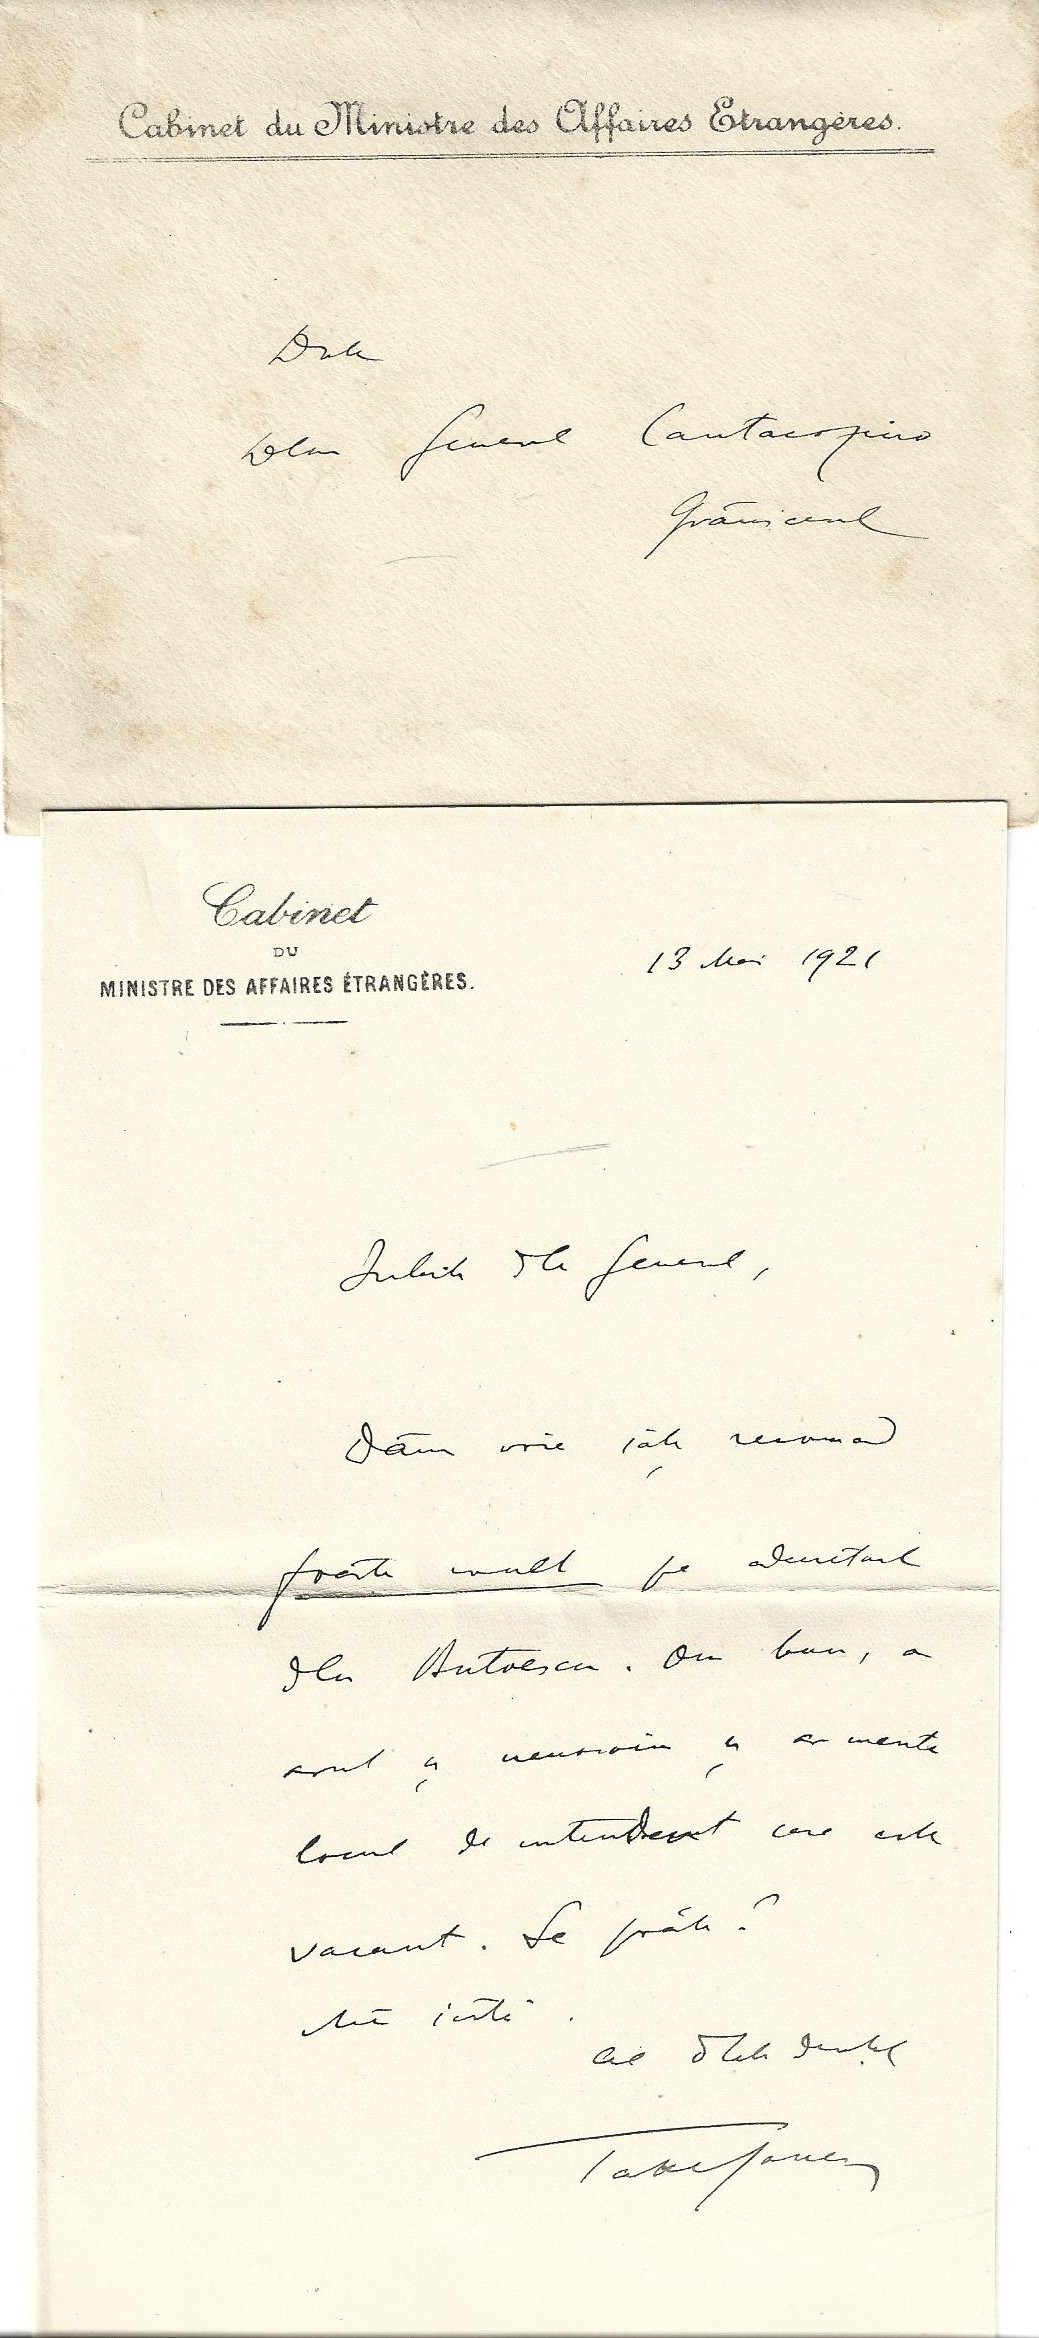 Cabinet du Ministre des Affaires Etrangères.
Dsale
Dlui General Cantacuzino
Grănicerul
Cabinet
DU
MINISTRE DES AFFAIRES ÉTRANGÈRES.
13 Mai 1921
Iubite Dle General,
Dămi voie să-ți recomand
foarte mult pe aducătorul
Om bun, a
și și ar merita
locul de intendent care este
vacant. Se poate?
Mă iertă.
al Dtale devotat
Take Ionescu